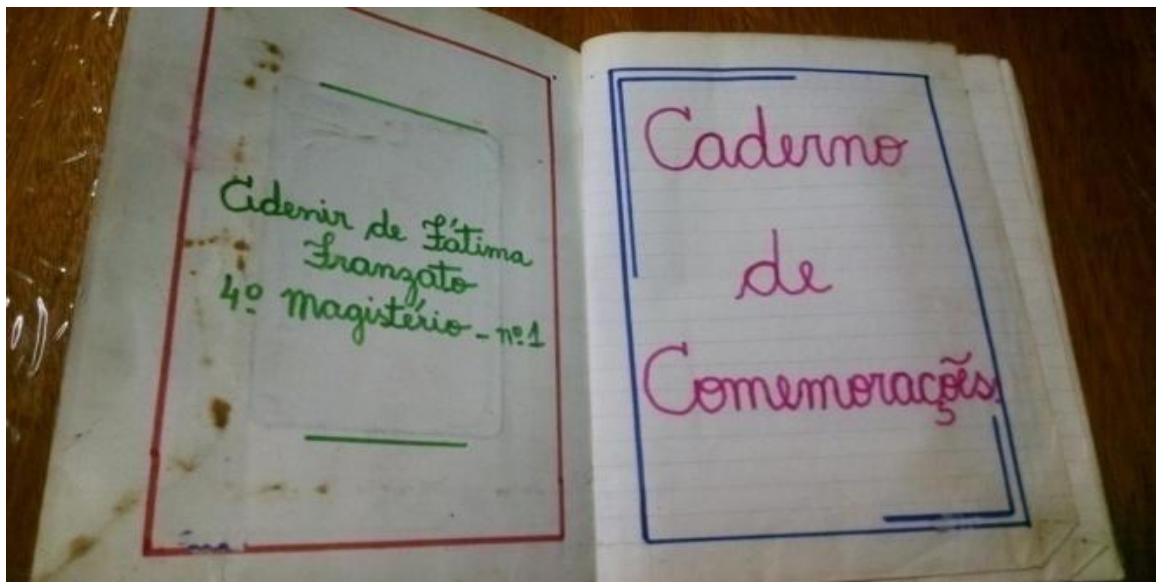 Cidenir de Fátima
Franzato
4º Magistério - nº 1
Caderno
de
Comemorações